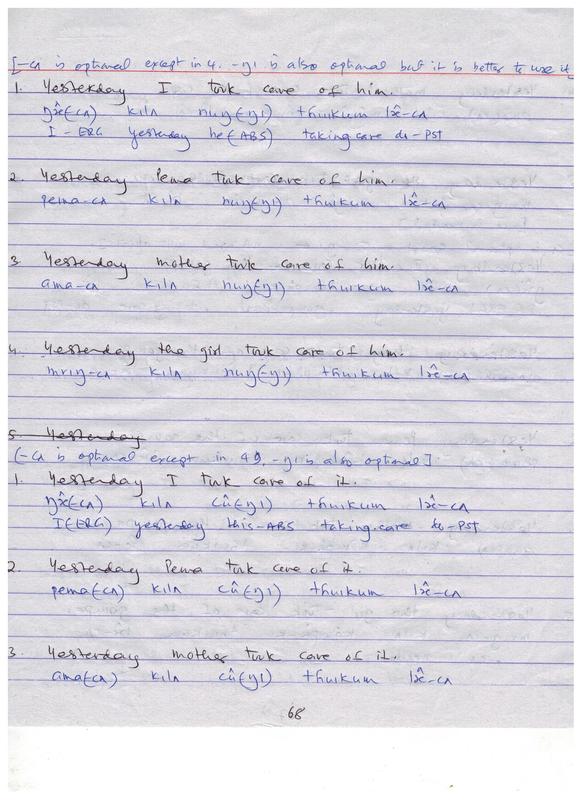 [-cʌ is optional except in 4. -ŋı is also optional but it is better to use it.
1. Yesterday I took care of him.
ŋæ̂(-cʌ) kılʌ nuŋ(-ŋı) tɦuıkum læ̂-cʌ
I-ERG yesterday he(ABS) taking care do-PST
2. Yesterday Pema took care of him.
pema-cʌ kılʌ nuŋ(-ŋı) tɦuıkum læ̂-cʌ
3. Yesterday mother took care of him.
ama-cʌ kılʌ nuŋ(-ŋı) tɦuıkum læ̂-cʌ
4. Yesterday the girl took care of him.
mrıŋ-cʌ kılʌ nuŋ(-ŋı) tɦuıkum læ̂-cʌ
5. Yesterday
(-cʌ is optional except in 4. -ŋı is also optional]
1. Yesterday I took care of it.
ŋæ̂(-cʌ) kılʌ cû(-ŋı) tɦuıkum læ̂-cʌ
I(ERG) yesterday this-ABS taking.care do-PST
2. Yesterday Pema took care of it.
pema(-cʌ) kılʌ cû(-ŋı) tɦuıkum læ̂-cʌ
3. Yesterday mother took care of it.
ama(-cʌ) kılʌ cû(-ŋı) tɦuıkum læ̂-cʌ
68